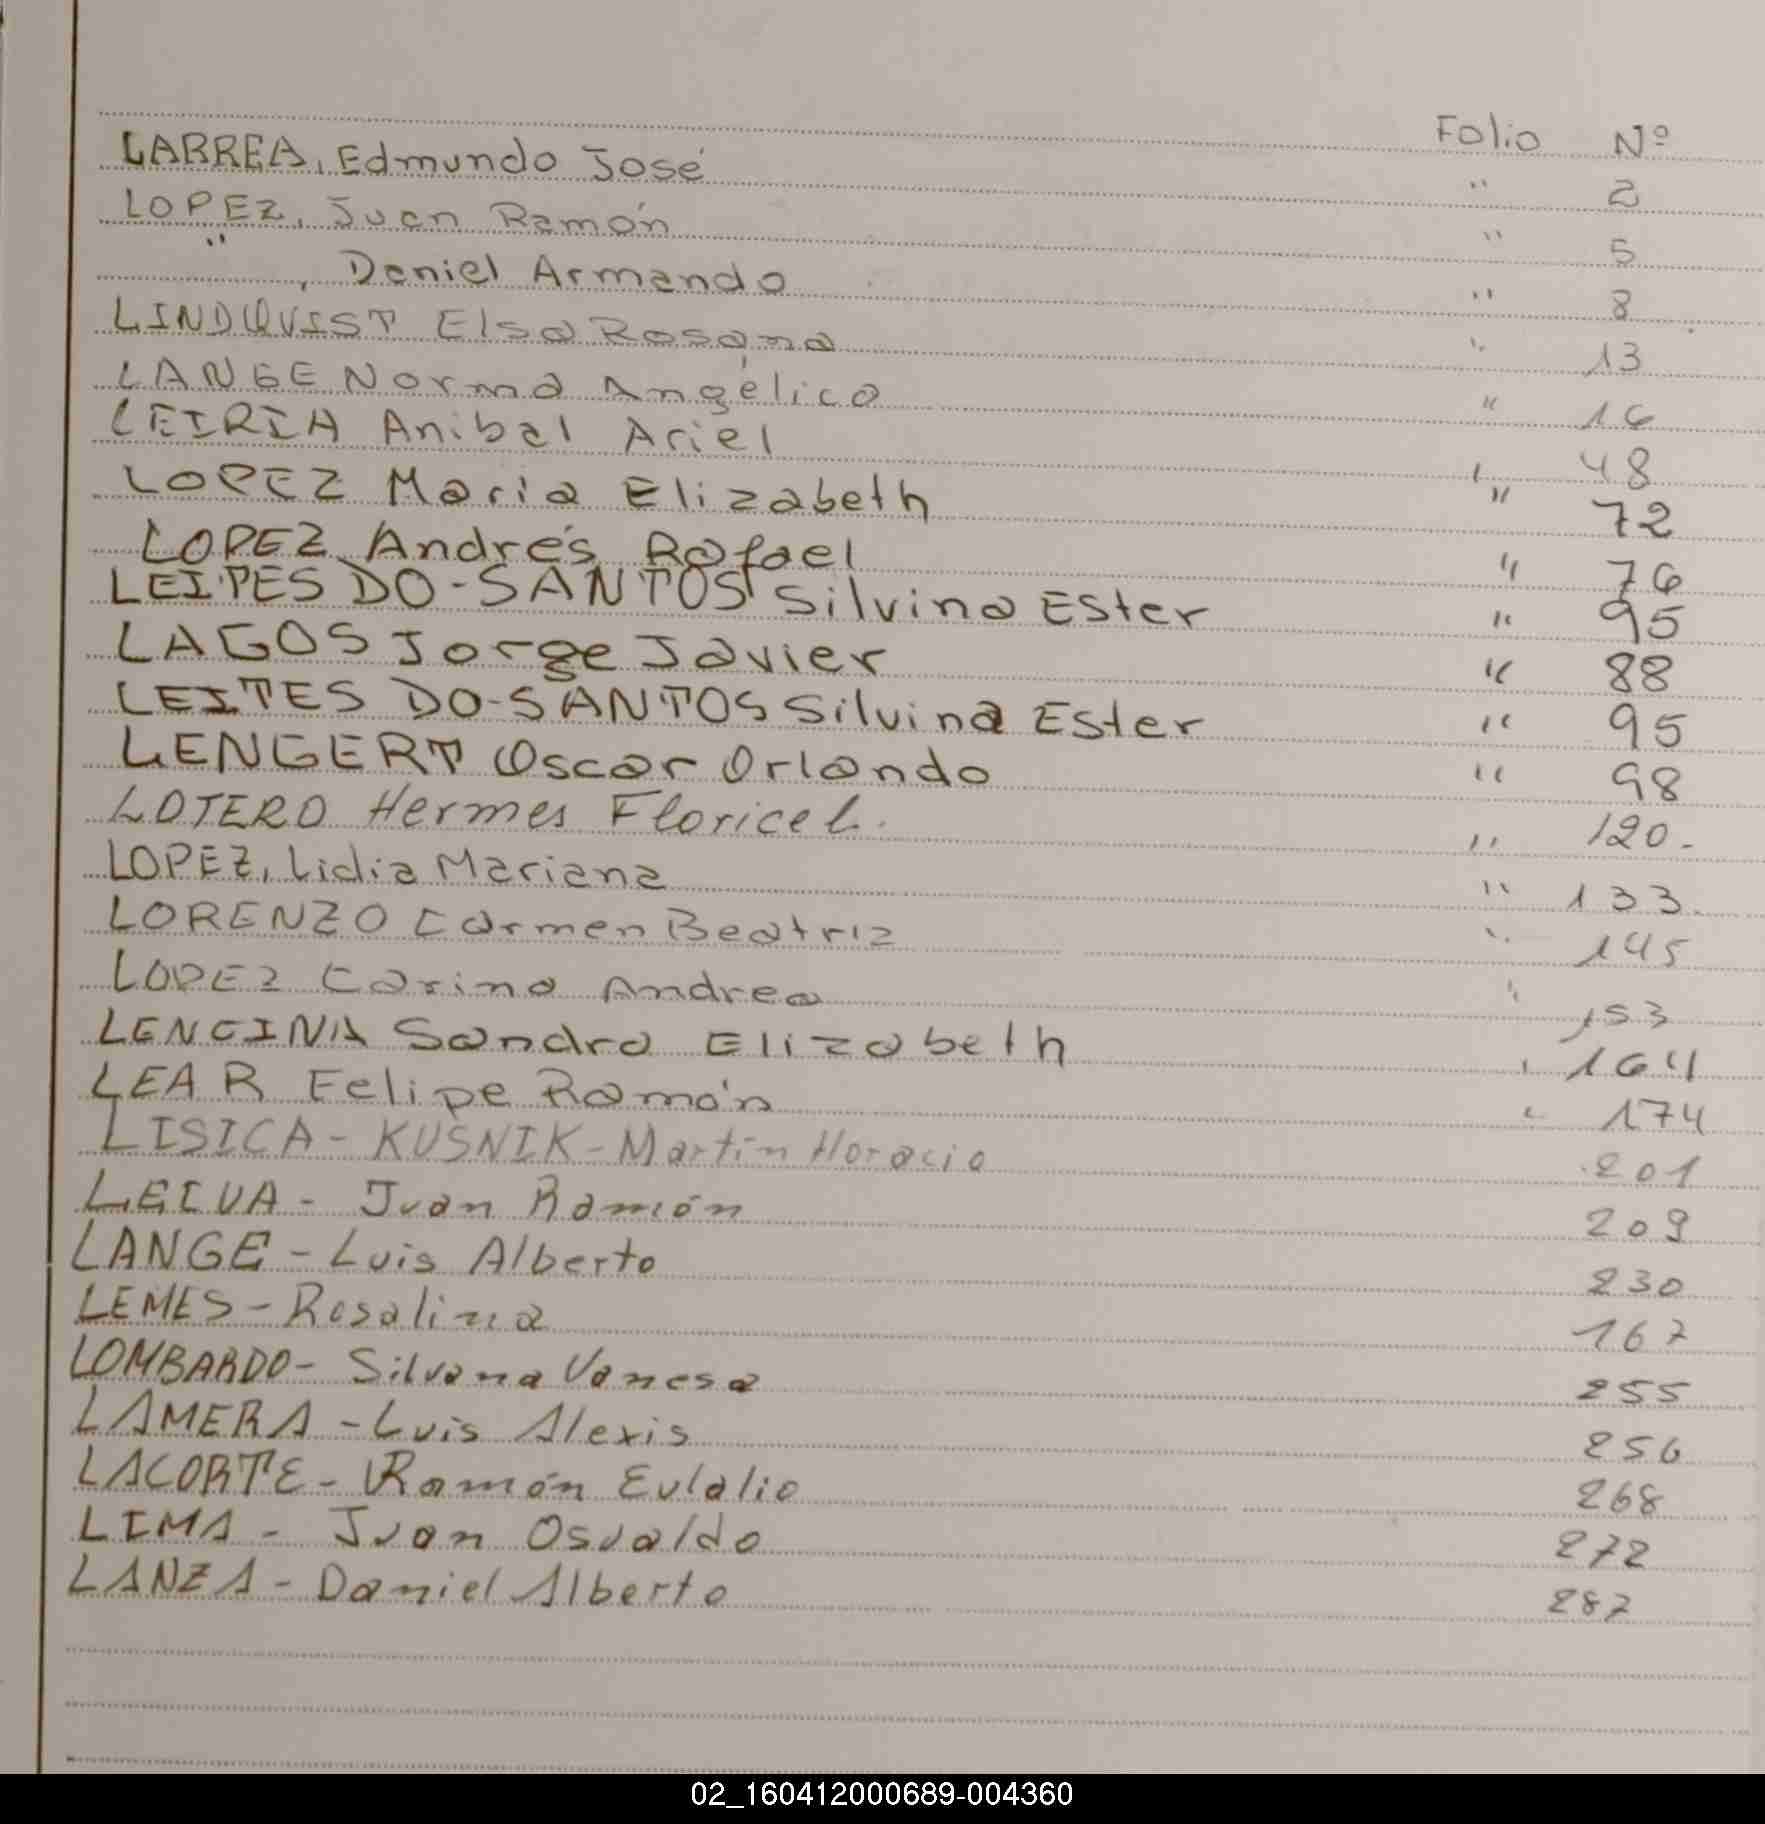 Folio Nº
LARREA, Edmundo José " 2
LOPEZ, Juan Ramón " 5
" , Daniel Armando " 8
LINDQVIST Elsa Rosana " 13
LANGE Norma Angélica " 16
LEIRIA Anibal Ariel " 48
LOPEZ Maria Elizabeth " 72
LOPEZ Andrés Rafael " 76
LEITES DO-SANTOS Silvina Ester " 95
LAGOS Jorge Javier " 88
LEITES DO-SANTOS Silvina Ester " 95
LENGERT Oscar Orlando " 98
LOTERO Hermes Floricel. " 120.-
LOPEZ, Lidia Mariana " 133.
LORENZO Carmen Beatriz " 145
LOPEZ Carina Andrea " 153
LENCINA Sandra Elizabeth " 164
LEAR Felipe Ramón " 174
LISICA - KUSNIK - Martín Horacio 201
LEIVA - Juan Ramón 209
LANGE - Luis Alberto 230
LEMES - Rosalina 167
LOMBARDO - Silvana Vanesa 255
LAMERA - Luis Alexis 256
LACORTE - Ramón Eulalio 268
LIMA - Juan Osvaldo 272
LANZA - Daniel Alberto 287
02_160412000689-004360